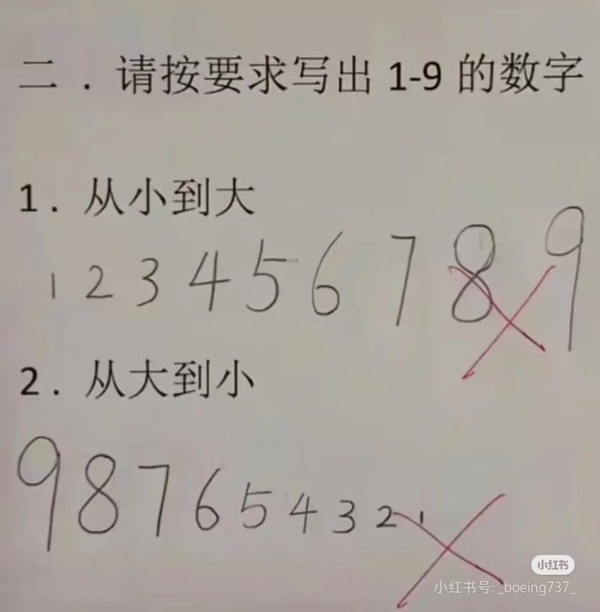 二．请按要求写出 1-9 的数字
1．从小到大
1 2 3 4 5 6 7 8 9
2．从大到小
9 8 7 6 5 4 3 2 1
小红书
小红书号: _boeing737_